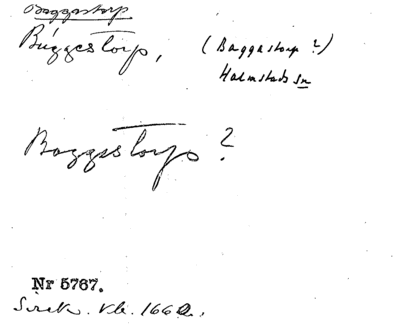 Baggestorp
Bággestorp, (Baggastorp?)
Halmstads sn
Baggestorp?
Nr 5767.
Svrek. Vb. 1662.